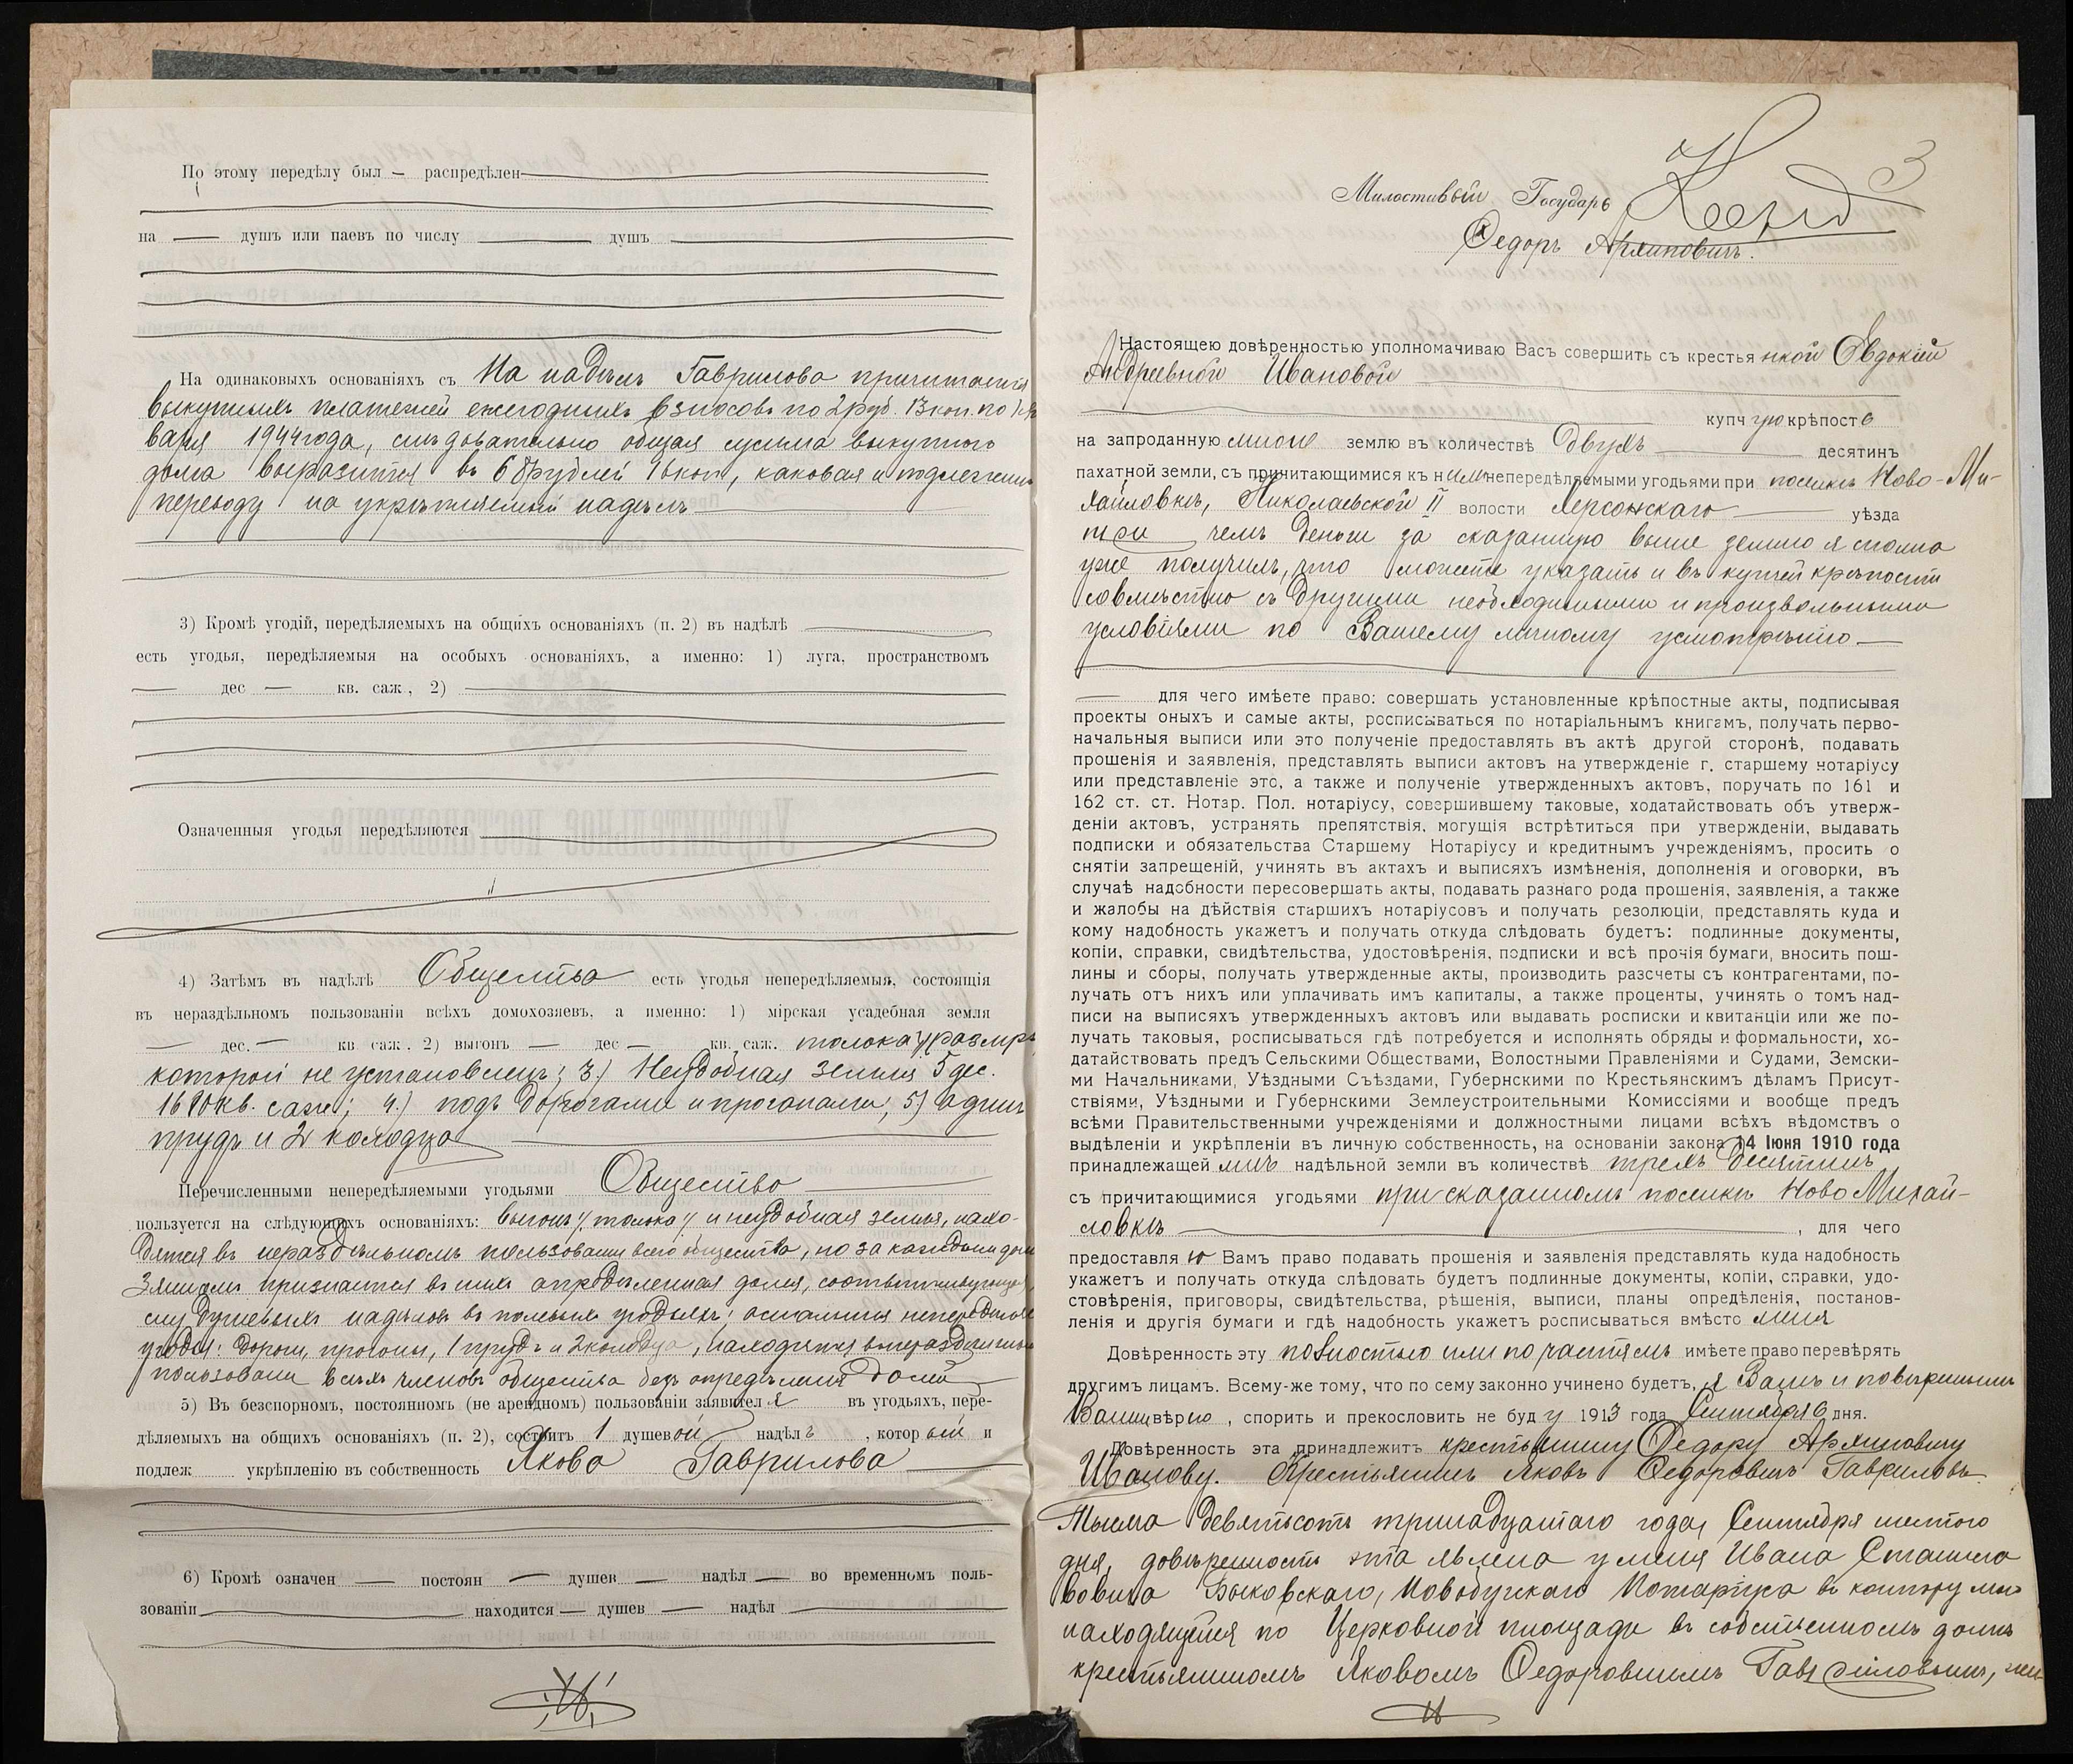 По этому передѣлу был — распредѣлен
на — душъ или паевъ по числу — душъ
На одинаковыхъ основаніяхъ съ На надѣлъ Гаврилова причитается
выкупныхъ платежей ежегодныхъ взносовъ по 2 руб. 13 коп. по 1 ян
варя 1944 года, слѣдовательно общая сумма выкупного
долга выразится въ 68 рублей 16 коп, каковая и подлежитъ
переводу на укрѣпляемый надѣлъ
3) Кромѣ угодій, передѣляемыхъ на общихъ основаніяхъ (п. 2) въ надѣлѣ
есть угодья, передѣляемыя на особыхъ основаніяхъ, а именно: 1) луга, пространствомъ
— дес — кв. саж, 2)
Означенныя угодья передѣляются
4) Затѣмъ въ надѣлѣ Общества есть угодья непередѣляемыя, состоящія
въ нераздѣльномъ пользованіи всѣхъ домохозяевъ, а именно: 1) мірская усадебная земля
— дес. — кв саж. 2) выгонъ — дес — кв. саж. толока размѣръ
которой не установленъ; 3) Неудобная земля 5 дес.
1690 кв. саж; 4) подъ дорогами и прогонами; 5) один
прудъ и 2 колодца
Перечисленными непередѣляемыми угодьями Общество
пользуется на слѣдующихъ основаніяхъ: выгонъ, толока и неудобная земля, нахо-
дятся въ нераздѣльномъ пользованіи всего общества, но за каждымъ домо
хозяиномъ признается въ нихъ опредѣленная доля, соотвѣтствующая
числу душевыхъ надѣловъ въ полевыхъ угодьяхъ; остальныя непередѣляем
угодья: дороги, прогоны, 1 прудъ и 2 колодца, находятся въ нераздѣльномъ
пользованіи всѣхъ членовъ общества безъ опредѣленія долей
5) Въ безспорномъ, постоянномъ (не арендномъ) пользованіи заявителя въ угодьяхъ, пере-
дѣляемыхъ на общихъ основаніяхъ (п. 2), состоитъ 1 душевой надѣлъ, который и
подлеж укрѣпленію въ собственность Якова Гаврилова
6) Кромѣ означен — постоян — душев — надѣл — во временномъ поль-
зованіи — находится — душев — надѣл
3
Милостивый Государь
Федоръ Архиповичъ.
Настоящею довѣренностью уполномачиваю Васъ совершить съ крестьянкой Евдокіей
Андреевной Ивановой
купчую крѣпость
на запроданную мною землю въ количествѣ двухъ десятинъ
пахатной земли, съ причитающимися къ нимъ непередѣляемыми угодьями при поселкѣ Ново-Ми-
хайловкѣ, Николаевской II волости Херсонскаго уѣзда
при чемъ деньги за сказанную выше землю я сполна
уже получилъ, что можете указать и въ купчей крѣпости
совмѣстно съ другими необходимыми и произвольными
условіями по Вашему личному усмотрѣнію
для чего имѣете право: совершать установленные крѣпостные акты, подписывая
проекты оныхъ и самые акты, росписываться по нотаріальнымъ книгамъ, получать перво-
начальныя выписи или это полученіе предоставлять въ актѣ другой сторонѣ, подавать
прошенія и заявленія, представлять выписи актовъ на утвержденіе г. старшему нотаріусу
или представленіе это, а также и полученіе утвержденныхъ актовъ, поручать по 161 и
162 ст. ст. Нотар. Пол. нотаріусу, совершившему таковые, ходатайствовать объ утверж-
деніи актовъ, устранять препятствія, могущія встрѣтиться при утвержденіи, выдавать
подписки и обязательства Старшему Нотаріусу и кредитнымъ учрежденіямъ, просить о
снятіи запрещеній, учинять въ актахъ и выписяхъ измѣненія, дополненія и оговорки, въ
случаѣ надобности пересовершать акты, подавать разнаго рода прошенія, заявленія, а также
и жалобы на дѣйствія старшихъ нотаріусовъ и получать резолюціи, представлять куда и
кому надобность укажетъ и получать откуда слѣдовать будетъ: подлинные документы,
копіи, справки, свидѣтельства, удостовѣренія, подписки и всѣ прочія бумаги, вносить пош-
лины и сборы, получать утвержденные акты, производить разсчеты съ контрагентами, по-
лучать отъ нихъ или уплачивать имъ капиталы, а также проценты, учинять о томъ над-
писи на выписяхъ утвержденныхъ актовъ или выдавать росписки и квитанціи или же по-
лучать таковыя, росписываться гдѣ потребуется и исполнять обряды и формальности, хо-
датайствовать предъ Сельскими Обществами, Волостными Правленіями и Судами, Земски-
ми Начальниками, Уѣздными Съѣздами, Губернскими по Крестьянскимъ дѣламъ Присут-
ствіями, Уѣздными и Губернскими Землеустроительными Комиссіями и вообще предъ
всѣми Правительственными учрежденіями и должностными лицами всѣхъ вѣдомствъ о
выдѣленіи и укрѣпленіи въ личную собственность, на основаніи закона 14 Іюня 1910 года
принадлежащей мнѣ надѣльной земли въ количествѣ трехъ десятинъ
съ причитающимися угодьями при сказанномъ поселкѣ Ново Михай-
ловкѣ, для чего
предоставляю Вамъ право подавать прошенія и заявленія представлять куда надобность
укажетъ и получать откуда слѣдовать будетъ подлинные документы, копіи, справки, удо-
стовѣренія, приговоры, свидѣтельства, рѣшенія, выписи, планы опредѣленія, постанов-
ленія и другія бумаги и гдѣ надобность укажетъ росписываться вмѣсто меня
Довѣренность эту полностью или по частямъ имѣете право перевѣрять
другимъ лицамъ. Всему-же тому, что по сему законно учинено будетъ, я Вамъ и повѣреннымъ
Вашим вѣрю, спорить и прекословить не буду 1913 года Сентября 6 дня.
Довѣренность эта принадлежитъ крестьянину Федору Архиповичу
Иванову. Крестьянинъ Яковъ Федоровичъ Гавриловъ.
Тысяча девятьсотъ тринадцатаго года, Сентября шестого
дня, довѣренность эта явлена у меня Ивана Станисла
вовича Быковскаго, Новобугскаго Нотаріуса въ контору мою
находящуюся по Церковной площади въ собственномъ домѣ
крестьяниномъ Яковомъ Федоровичемъ Гавриловымъ, жи-